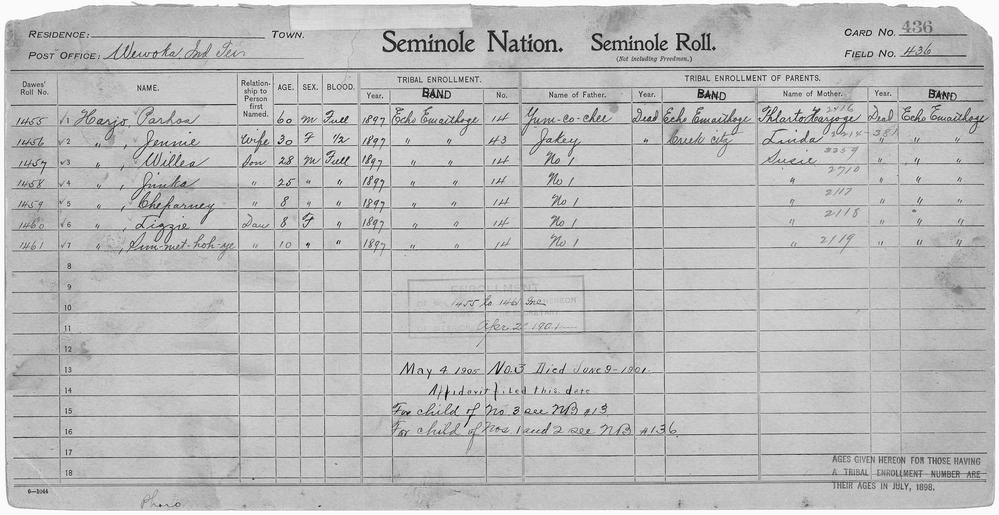 RESIDENCE: TOWN. Seminole Nation. Seminole Roll. CARD NO. 436
POST OFFICE: Wewoka Ind Ter (Not including Freedmen.) FIELD NO. 436
Dawes' Roll No. NAME. Relationship to Person first Named. AGE. SEX. BLOOD. TRIBAL ENROLLMENT. TRIBAL ENROLLMENT OF PARENTS.
Year. BAND No. Name of Father. Year. BAND Name of Mother. Year. BAND
1455 √1 Harjo, Parhos 60 M Full 1897 Echo Emaithoge 14 Yum-co-chee Dead Echo Emaithoge Thlarto Harjoge 2416 Dead Echo Emaithoge
1456 √2 " , Jennie Wife 30 F 1/2 1897 " " 43 Jakey " Creek city Linda 2214-381 " "
1457 √3 " , Willea Son 28 M Full 1897 " " 14 No 1 Susie 2259 " " "
1458 √4 " , Jimka " 25 " " 1897 " " 14 No 1 " 2710 " " "
1459 √5 " , Cheparney " 8 " " 1897 " " 14 No 1 " 2117 " " "
1460 √6 " , Lizzie Dau 8 F " 1897 " " 14 No 1 " 2118 " " "
1461 √7 " , 10 " " 1897 " " 14 No 1 " 2119 " " "
8
9
ENROLLMENT
10 1455 to 1461 Inc
11 Apr 2 1901
12
13 May 4 1905 No.3 Died June 9-1901.
14 Affidavit filed this date
15 For child of No 3 see NB #13
16 For child of Nos. 1 and 2 see NB #136.
17
18
AGES GIVEN HEREON FOR THOSE HAVING
A TRIBAL ENROLLMENT NUMBER ARE
THEIR AGES IN JULY, 1898.
6-1044